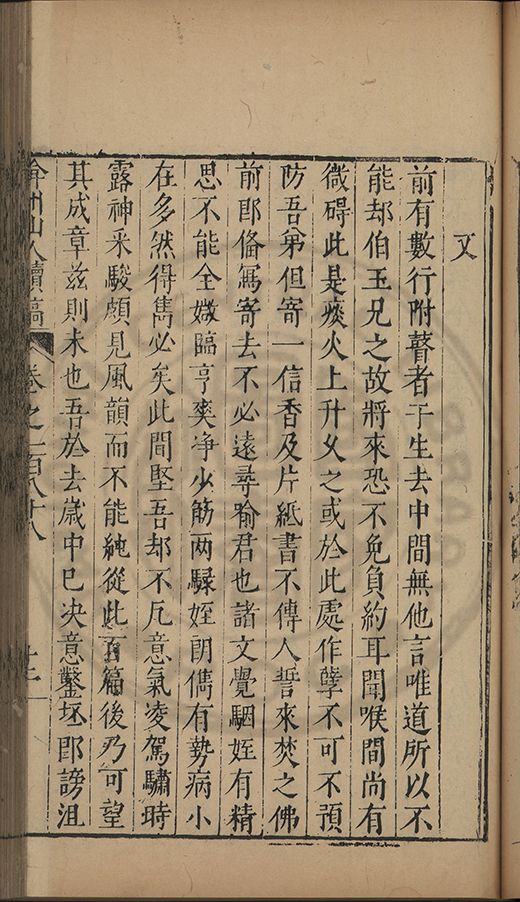 又
前有數行附瞽者于生去中間無他言唯道所以不
能却伯玉兄之故將來恐不免負約耳聞喉間尚有
微碍此是痰火上升久之或於此處作孽不可不預
防吾弟但寄一信香及片紙書不傳人誓來焚之佛
前即偹寫寄去不必遠尋喻君也諸文覺駰姪有精
思不能全媺臨亨爽净少筋两騄姪朗儁有勢病小
在多然得雋必矣此間堅吾却不凡意氣凌駕驌時
露神采駿頗見風韻而不能純從此百篇後乃可望
其成章兹則未也吾於去嵗中已决意鑿坯即謗沮
弇州山人續稿
卷之一百八十八